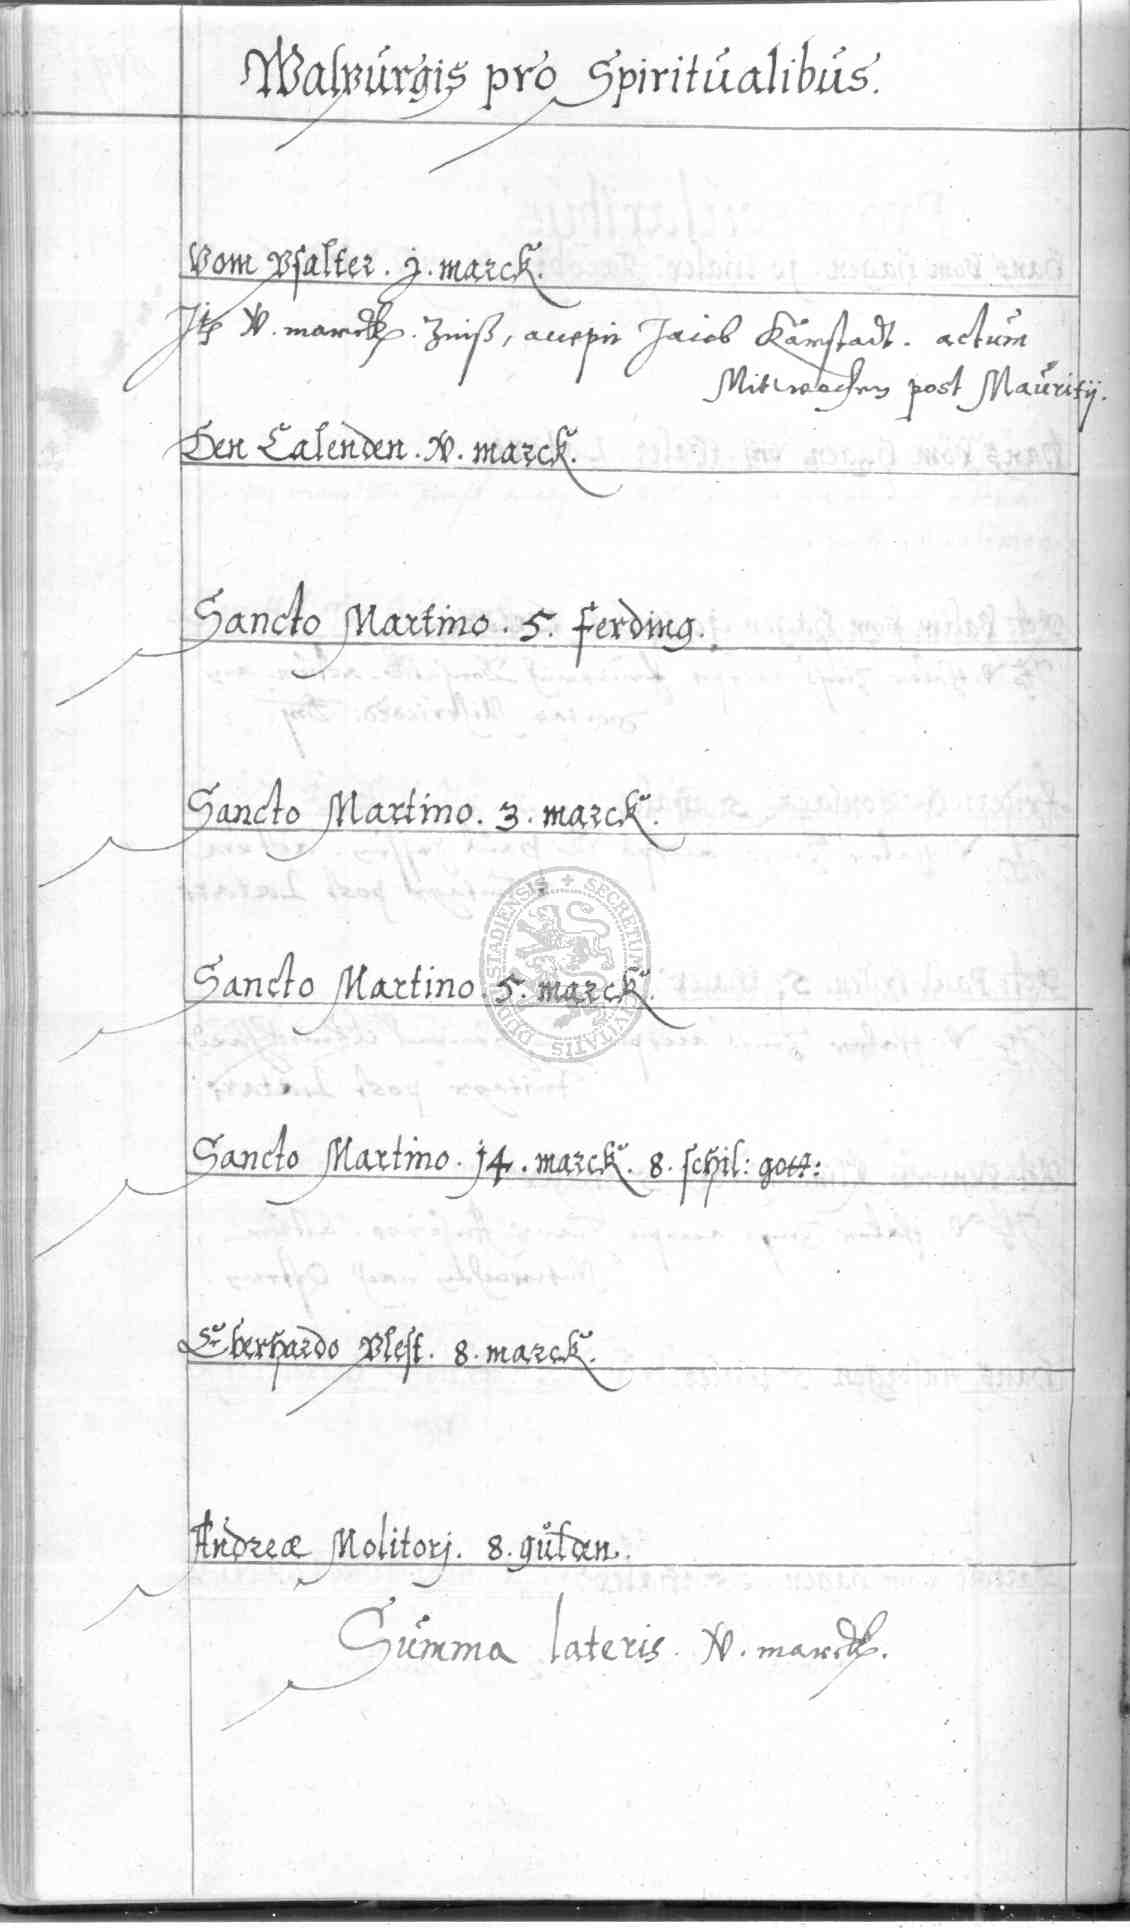 Walpurgis pro Spiritualibus.
Vom Psalter. j. marck.
Itē iv. marck. Zinß, accepit Jacob Karstadt. actum
Mittwochen post Mauritij.
Den Calenden. iv. marck.
Sancto Martino. 5. ferding.
Sancto Martino. 3. marck.
Sancto Martino. 5. marck.
Sancto Martino. j4. marck. 8. schil: gott:
Eberhardo Plest. 8. marck.
Andreæ Molitorj. 8. gulden.
Summa lateris. iv. marck.
SECRETUM CIVITATIS